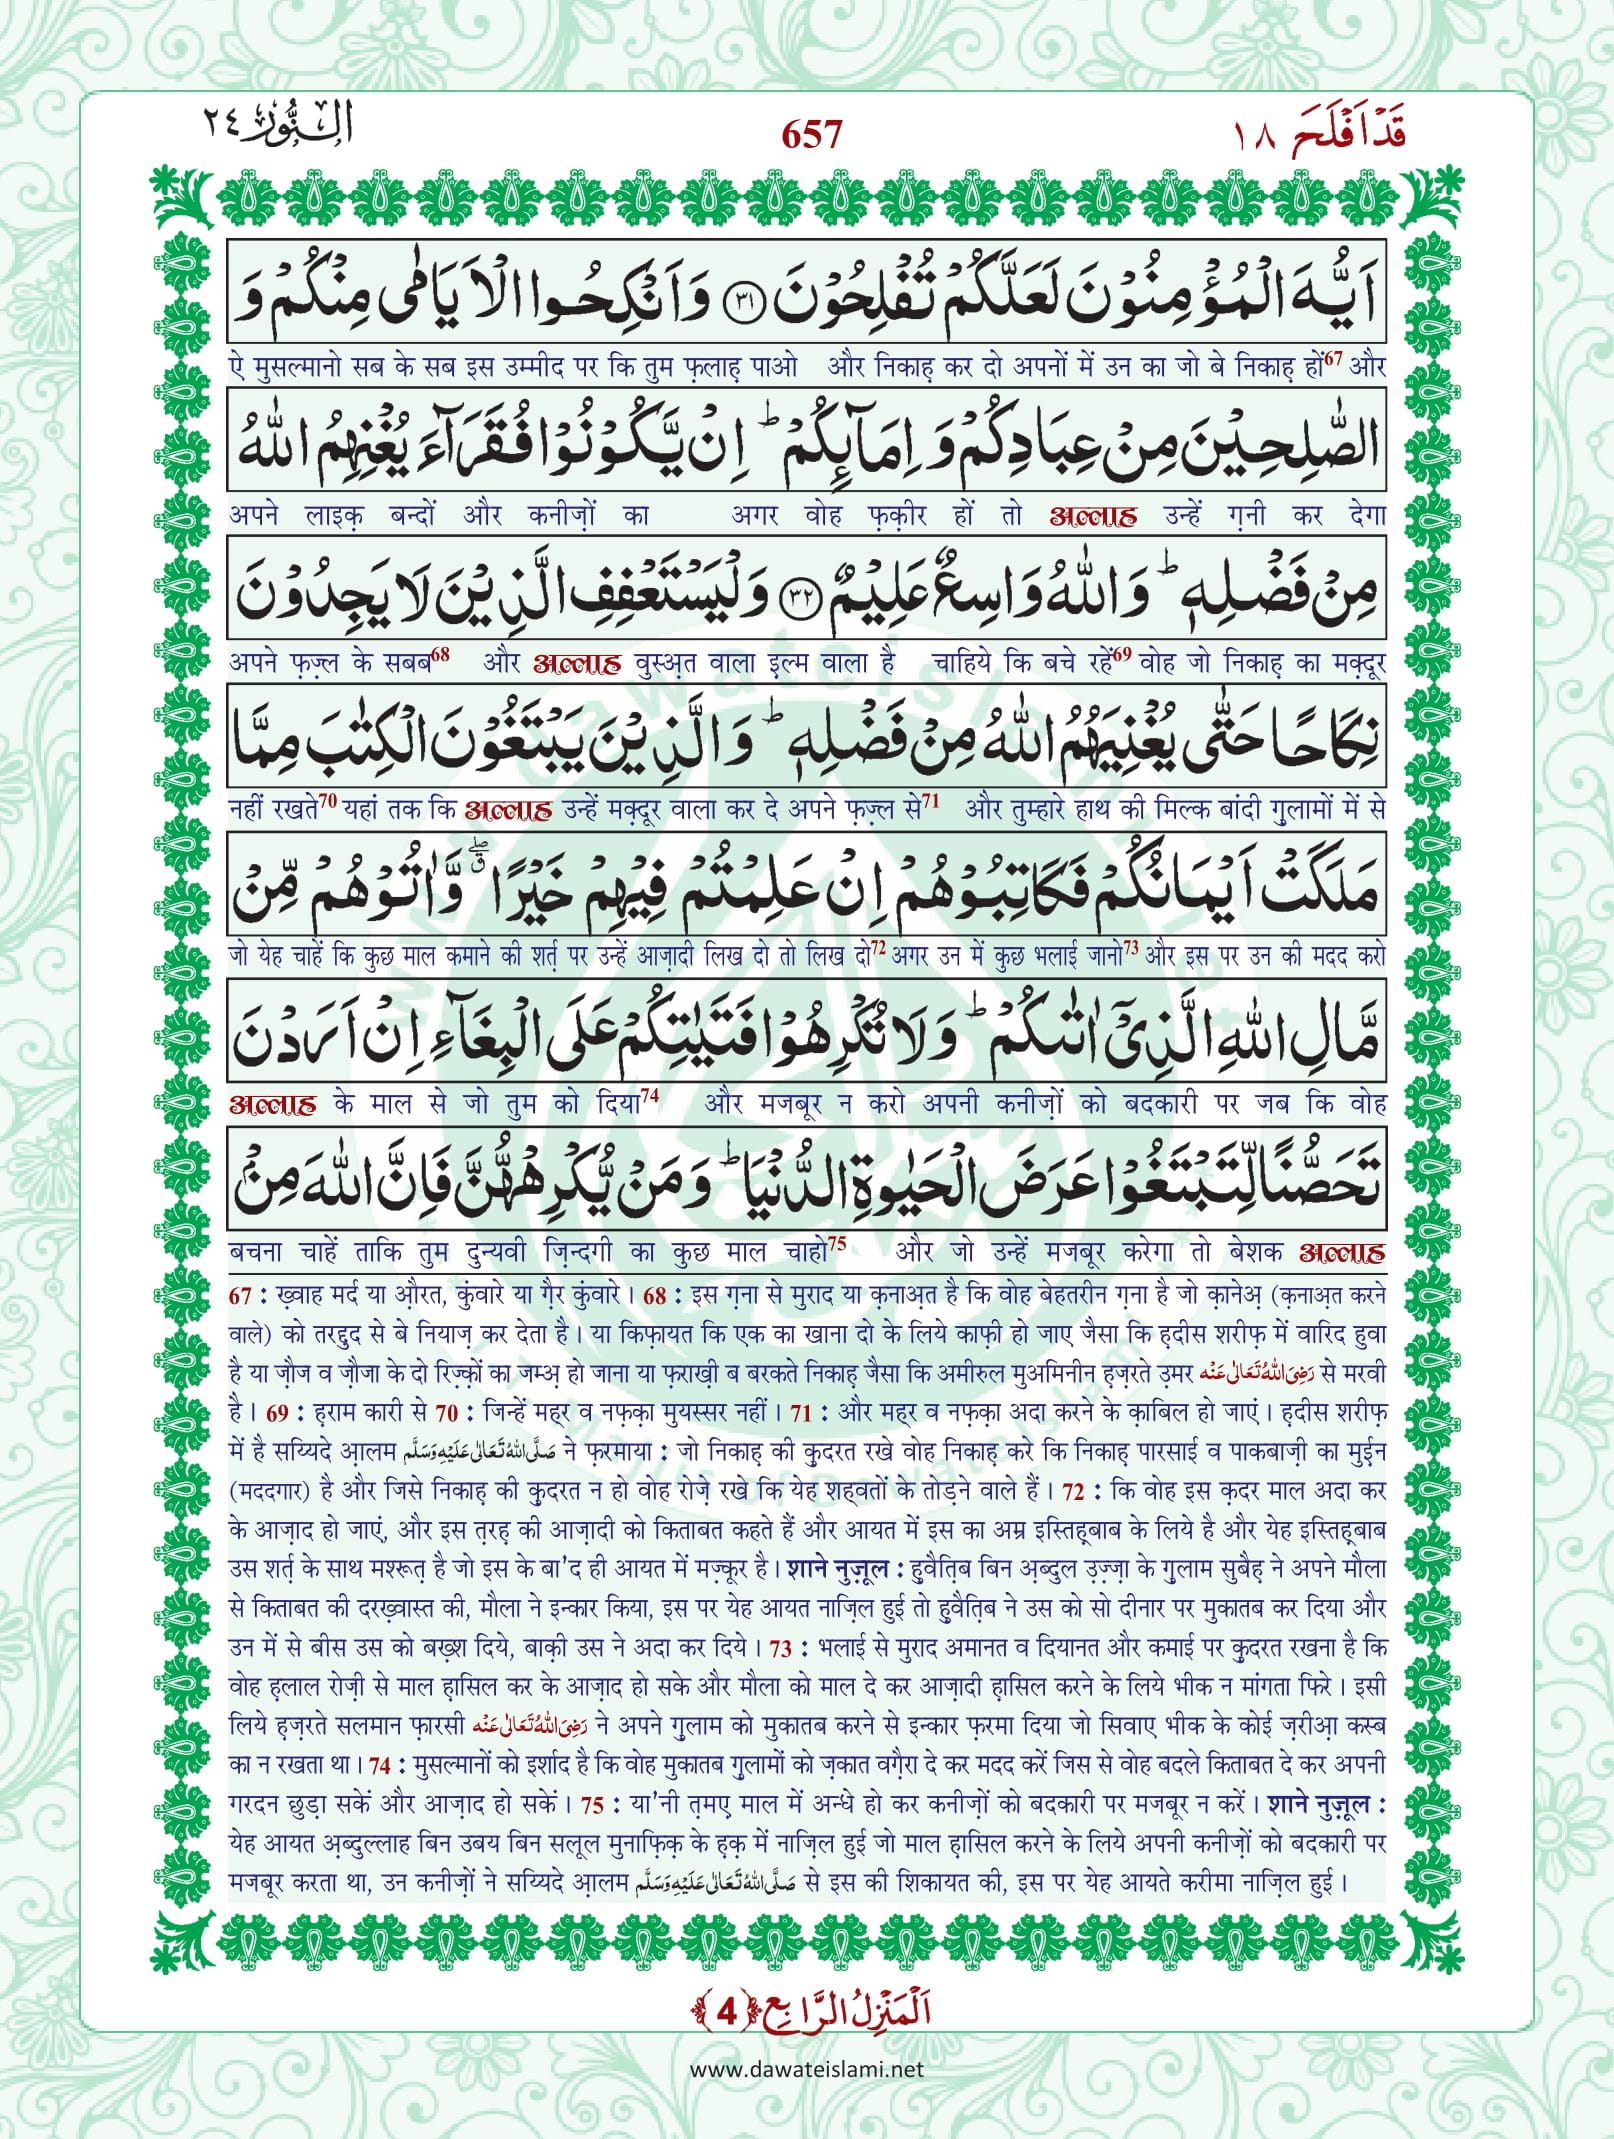 قَدْاَفْلَحَ ١٨
657
اَلنُّوْر ٢٤
اَيُّهَ الْمُؤْمِنُوْنَ لَعَلَّكُمْ تُفْلِحُوْنَ ﴿۳۱﴾ وَاَنْكِحُوا الْاَيَامٰى مِنْكُمْ وَ
ऐ मुसल्मानो सब के सब इस उम्मीद पर कि तुम फ़लाह़ पाओ और निकाह़ कर दो अपनों में उन का जो बे निकाह़ हों67 और
الصّٰلِحِيْنَ مِنْ عِبَادِكُمْ وَ اِمَآىِٕكُمْ ؕ اِنْ يَّكُوْنُوْا فُقَرَآءَ يُغْنِهِمُ اللّٰهُ
अपने लाइक़ बन्दों और कनीज़ों का अगर वोह फ़क़ीर हों तो अल्लाह उन्हें ग़नी कर देगा
مِنْ فَضْلِهٖ ؕ وَ اللّٰهُ وَاسِعٌ عَلِيْمٌ ﴿۳۲﴾ وَلْيَسْتَعْفِفِ الَّذِيْنَ لَا يَجِدُوْنَ
अपने फ़ज़्ल के सबब68 और अल्लाह वुस्अ़त वाला इ़ल्म वाला है चाहिये कि बचे रहें69 वोह जो निकाह़ का मक़्दूर
نِكَاحًا حَتّٰى يُغْنِيَهُمُ اللّٰهُ مِنْ فَضْلِهٖ ؕ وَ الَّذِيْنَ يَبْتَغُوْنَ الْكِتٰبَ مِمَّا
नहीं रखते70 यहां तक कि अल्लाह उन्हें मक़्दूर वाला कर दे अपने फ़ज़्ल से71 और तुम्हारे हाथ की मिल्क बांदी ग़ुलामों में से
مَلَكَتْ اَيْمَانُكُمْ فَكَاتِبُوْهُمْ اِنْ عَلِمْتُمْ فِيْهِمْ خَيْرًا ۖۗ وَّاٰتُوْهُمْ مِّنْ
जो येह चाहें कि कुछ माल कमाने की शर्त़ पर उन्हें आज़ादी लिख दो तो लिख दो72 अगर उन में कुछ भलाई जानो73 और इस पर उन की मदद करो
مَّالِ اللّٰهِ الَّذِيْۤ اٰتٰىكُمْ ؕ وَلَا تُكْرِهُوْا فَتَيٰتِكُمْ عَلَى الْبِغَآءِ اِنْ اَرَدْنَ
अल्लाह के माल से जो तुम को दिया74 और मजबूर न करो अपनी कनीज़ों को बदकारी पर जब कि वोह
تَحَصُّنًا لِّتَبْتَغُوْا عَرَضَ الْحَيٰوةِ الدُّنْيَا ؕ وَمَنْ يُّكْرِهْهُّنَّ فَاِنَّ اللّٰهَ مِنْۢ
बचना चाहें ताकि तुम दुन्यवी ज़िन्दगी का कुछ माल चाहो75 और जो उन्हें मजबूर करेगा तो बेशक अल्लाह
67 : ख़्वाह मर्द या औ़रत, कुंवारे या ग़ैर कुंवारे । 68 : इस ग़ना से मुराद या क़नाअ़त है कि वोह बेहतरीन ग़ना है जो क़ानेअ़ (क़नाअ़त करने
वाले) को तरद्दुद से बे नियाज़ कर देता है । या किफ़ायत कि एक का खाना दो के लिये काफ़ी हो जाए जैसा कि ह़दीस शरीफ़ में वारिद हुवा
है या ज़ौज व ज़ौजा के दो रिज़्क़ों का जम्अ़ हो जाना या फ़राख़ी ब बरकते निकाह़ जैसा कि अमीरुल मुअमिनीन ह़ज़रते उ़मर رَضِیَ اللّٰهُ تَعَالٰی عَنْه से मरवी
है । 69 : ह़राम कारी से 70 : जिन्हें महर व नफ़क़ा मुयस्सर नहीं । 71 : और महर व नफ़क़ा अदा करने के क़ाबिल हो जाएं । ह़दीस शरीफ़
में है सय्यिदे आ़लम صَلَّی اللّٰهُ تَعَالٰی عَلَیْهِ وَسَلَّم ने फ़रमाया : जो निकाह़ की क़ुदरत रखे वोह निकाह़ करे कि निकाह़ पारसाई व पाकबाज़ी का मुई़न
(मददगार) है और जिसे निकाह़ की क़ुदरत न हो वोह रोज़े रखे कि येह शह्वतों के तोड़ने वाले हैं । 72 : कि वोह इस क़दर माल अदा कर
के आज़ाद हो जाएं, और इस त़रह़ की आज़ादी को किताबत कहते हैं और आयत में इस का अम्र इस्तिह़्बाब के लिये है और येह इस्तिह़्बाब
उस शर्त़ के साथ मश्रूत़ है जो इस के बा'द ही आयत में मज़्कूर है । शाने नुज़ूल : हुवैत़िब बिन अ़ब्दुल उ़ज़्ज़ा के ग़ुलाम सुबैह़ ने अपने मौला
से किताबत की दरख़्वास्त की, मौला ने इन्कार किया, इस पर येह आयत नाज़िल हुई तो हुवैत़िब ने उस को सो दीनार पर मुकातब कर दिया और
उन में से बीस उस को बख़्श दिये, बाक़ी उस ने अदा कर दिये । 73 : भलाई से मुराद अमानत व दियानत और कमाई पर क़ुदरत रखना है कि
वोह ह़लाल रोज़ी से माल ह़ासिल कर के आज़ाद हो सके और मौला को माल दे कर आज़ादी ह़ासिल करने के लिये भीक न मांगता फिरे । इसी
लिये ह़ज़रते सलमान फ़ारसी رَضِیَ اللّٰهُ تَعَالٰی عَنْه ने अपने ग़ुलाम को मुकातब करने से इन्कार फ़रमा दिया जो सिवाए भीक के कोई ज़रीआ़ कस्ब
का न रखता था । 74 : मुसल्मानों को इर्शाद है कि वोह मुकातब ग़ुलामों को ज़कात वग़ैरा दे कर मदद करें जिस से वोह बदले किताबत दे कर अपनी
गरदन छुड़ा सकें और आज़ाद हो सकें । 75 : या'नी त़मए़ माल में अन्धे हो कर कनीज़ों को बदकारी पर मजबूर न करें । शाने नुज़ूल :
येह आयत अ़ब्दुल्लाह बिन उबय बिन सलूल मुनाफ़िक़ के ह़क़ में नाज़िल हुई जो माल ह़ासिल करने के लिये अपनी कनीज़ों को बदकारी पर
मजबूर करता था, उन कनीज़ों ने सय्यिदे आ़लम صَلَّی اللّٰهُ تَعَالٰی عَلَیْهِ وَسَلَّم से इस की शिकायत की, इस पर येह आयते करीमा नाज़िल हुई ।
اَلْمَنْزِلُ الرَّابِع ﴿4﴾
www.dawateislami.net